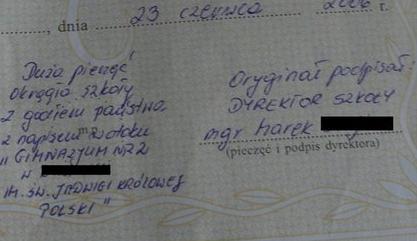 , dnia 23 czerwca 2006 r.
Duża pieczęć
okrągła szkoły
z godłem państwa
z napisem w otoku
"GIMNAZJUM NR 2
w
IM. ŚW. JADWIGI KRÓLOWEJ
POLSKI"
Oryginał podpisał:
DYREKTOR SZKOŁY
mgr Marek
(pieczęć i podpis dyrektora)